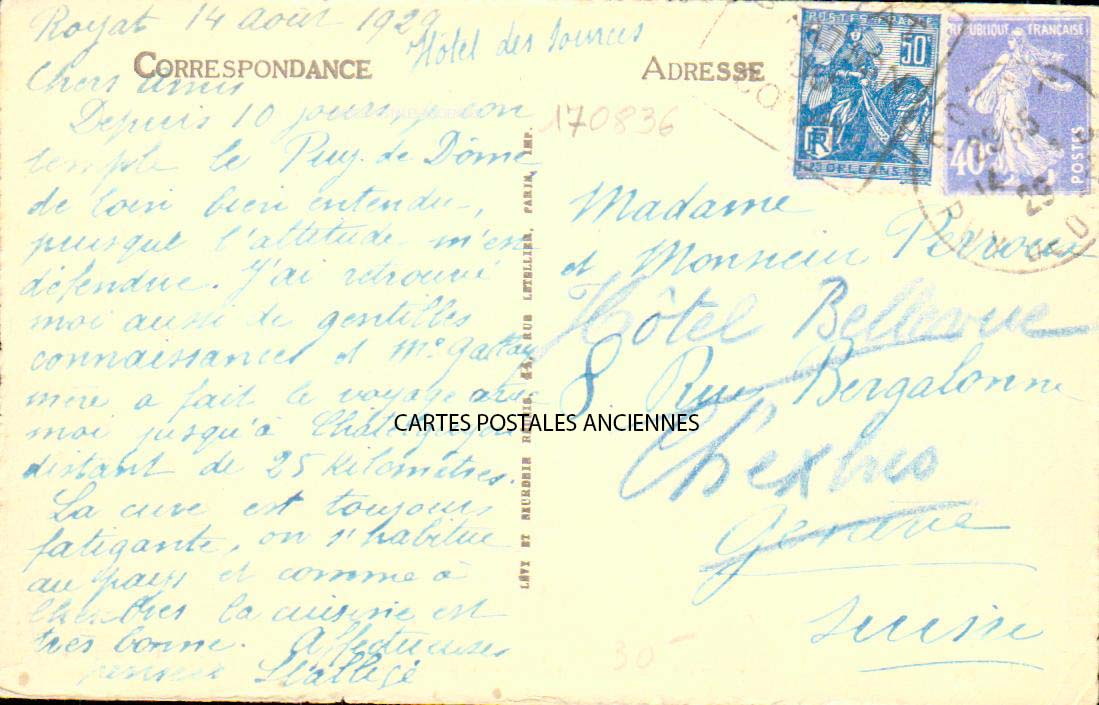 Royat 14 Août 1929
Hôtel des Sources
CORRESPONDANCE
Chers amis
Depuis 10 jours je con
temple le Puy de Dôme
de loin bien entendu,
puisque l'altitude m'est
défendue. J'ai retrouvé
moi aussi de gentilles
connaissances et Me
mère a fait le voyage avec
moi jusqu'à Châtelguyon
distant de 25 kilomètres.
La cure est toujours
fatigante, on s'habitue
au pays et comme à
Chexbres la cuisine est
très bonne. Affectueuses
pensées
LÉVY ET NEURDEIN RÉUNIS, 44, RUE LETELLIER, PARIS, IMP.
ADRESSE
170836
POSTES FRANCE
50c
RF
ORLEANS
RÉPUBLIQUE FRANÇAISE
40c
POSTES
Madame
et Monsieur Perroux
Hôtel Bellevue
8 Rue Bergalonne
CARTES POSTALES ANCIENNES
Chexbres
Genève
Suisse
30-